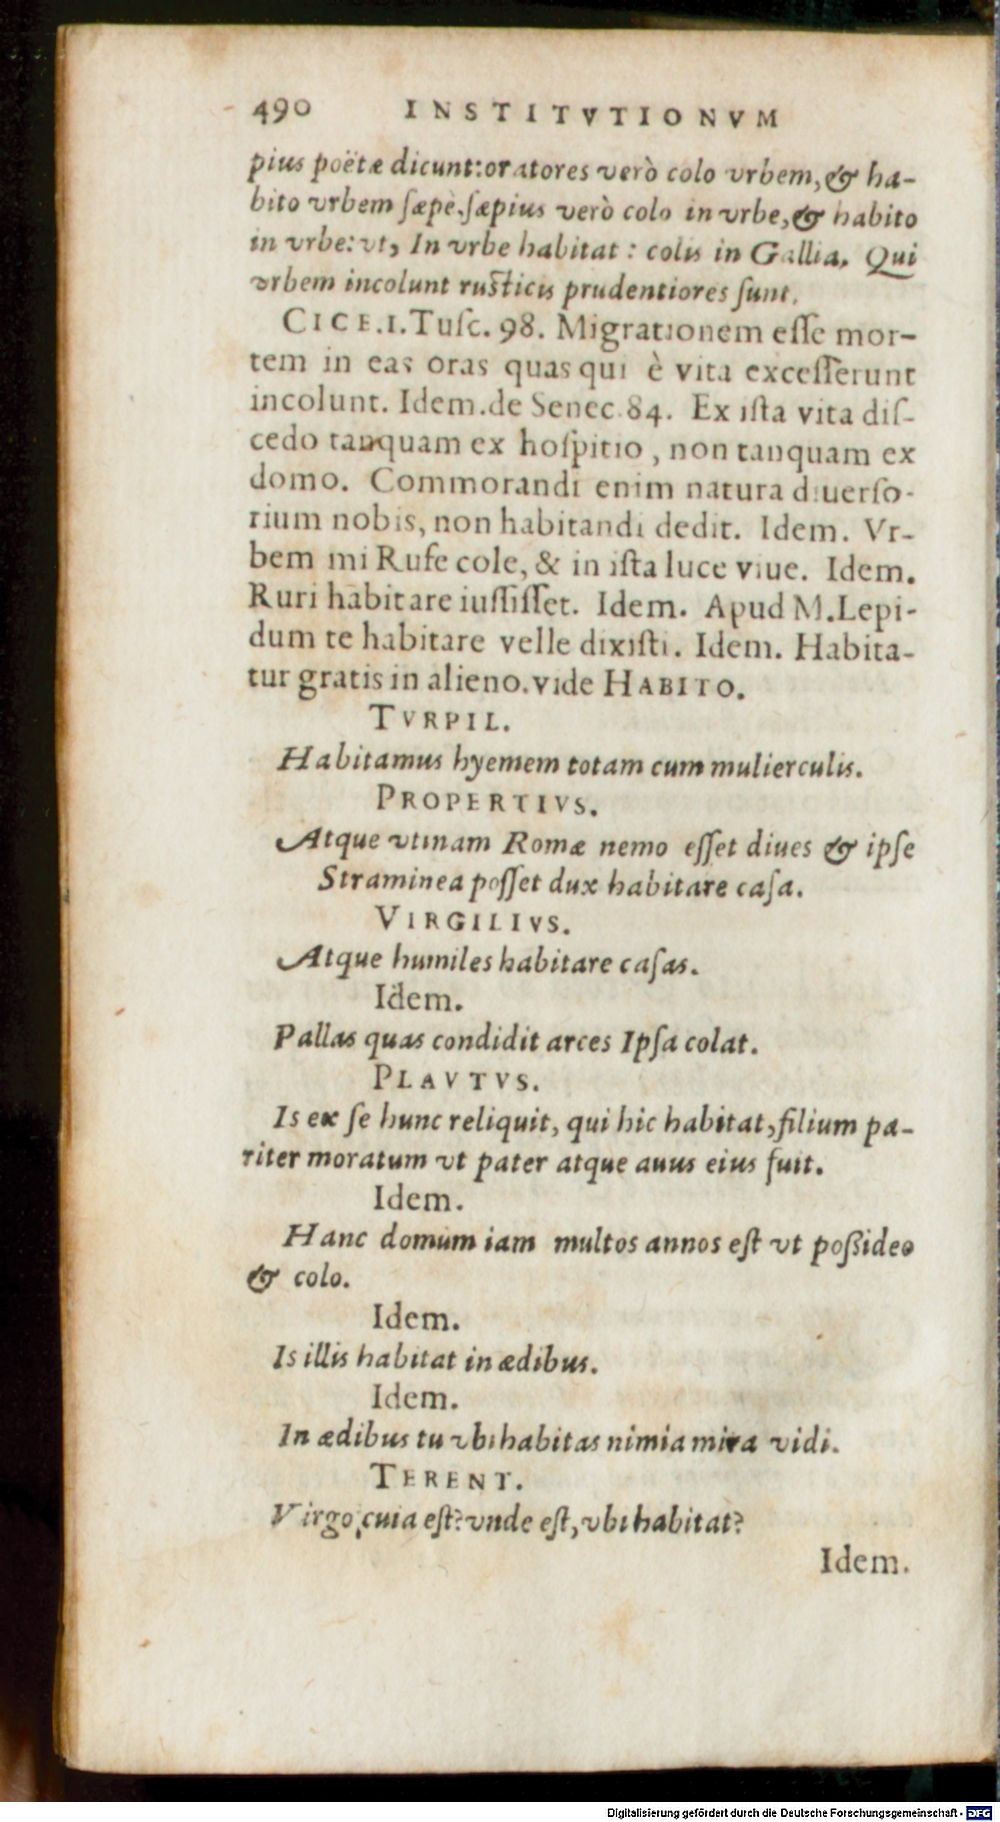 490 INSTITVTIONVM
pius poëtæ dicunt: oratores verò colo vrbem, & ha-
bito vrbem ſæpe. ſæpius verò colo in vrbe, & habito
in vrbe: vt, In vrbe habitat: colis in Gallia. Qui
vrbem incolunt ruſticis prudentiores ſunt.
CICE. I. Tuſc. 98. Migrationem eſſe mor-
tem in eas oras quas qui è vita exceſſerunt
incolunt. Idem. de Senec. 84. Ex iſta vita diſ-
cedo tanquam ex hoſpitio, non tanquam ex
domo. Commorandi enim natura diuerſo-
rium nobis, non habitandi dedit. Idem. Vr-
bem mi Rufe cole, & in iſta luce viue. Idem.
Ruri habitare iuſſiſſet. Idem. Apud M. Lepi-
dum te habitare velle dixiſti. Idem. Habita-
tur gratis in alieno. vide HABITO.
TVRPIL.
Habitamus hyemem totam cum mulierculis.
PROPERTIVS.
Atque vtinam Romæ nemo eſſet diues & ipſe
Straminea poſſet dux habitare caſa.
VIRGILIVS.
Atque humiles habitare caſas.
Idem.
Pallas quas condidit arces Ipſa colat.
PLAVTVS.
Is ex ſe hunc reliquit, qui hic habitat, filium pa-
riter moratum vt pater atque auus eius fuit.
Idem.
Hanc domum iam multos annos eſt vt poßideo
& colo.
Idem.
Is illis habitat in ædibus.
Idem.
In ædibus tu vbi habitas nimia mira vidi.
TERENT.
Virgo cuia eſt? vnde eſt, vbi habitat?
Idem.
Digitalisierung gefördert durch die Deutsche Forschungsgemeinschaft - DFG